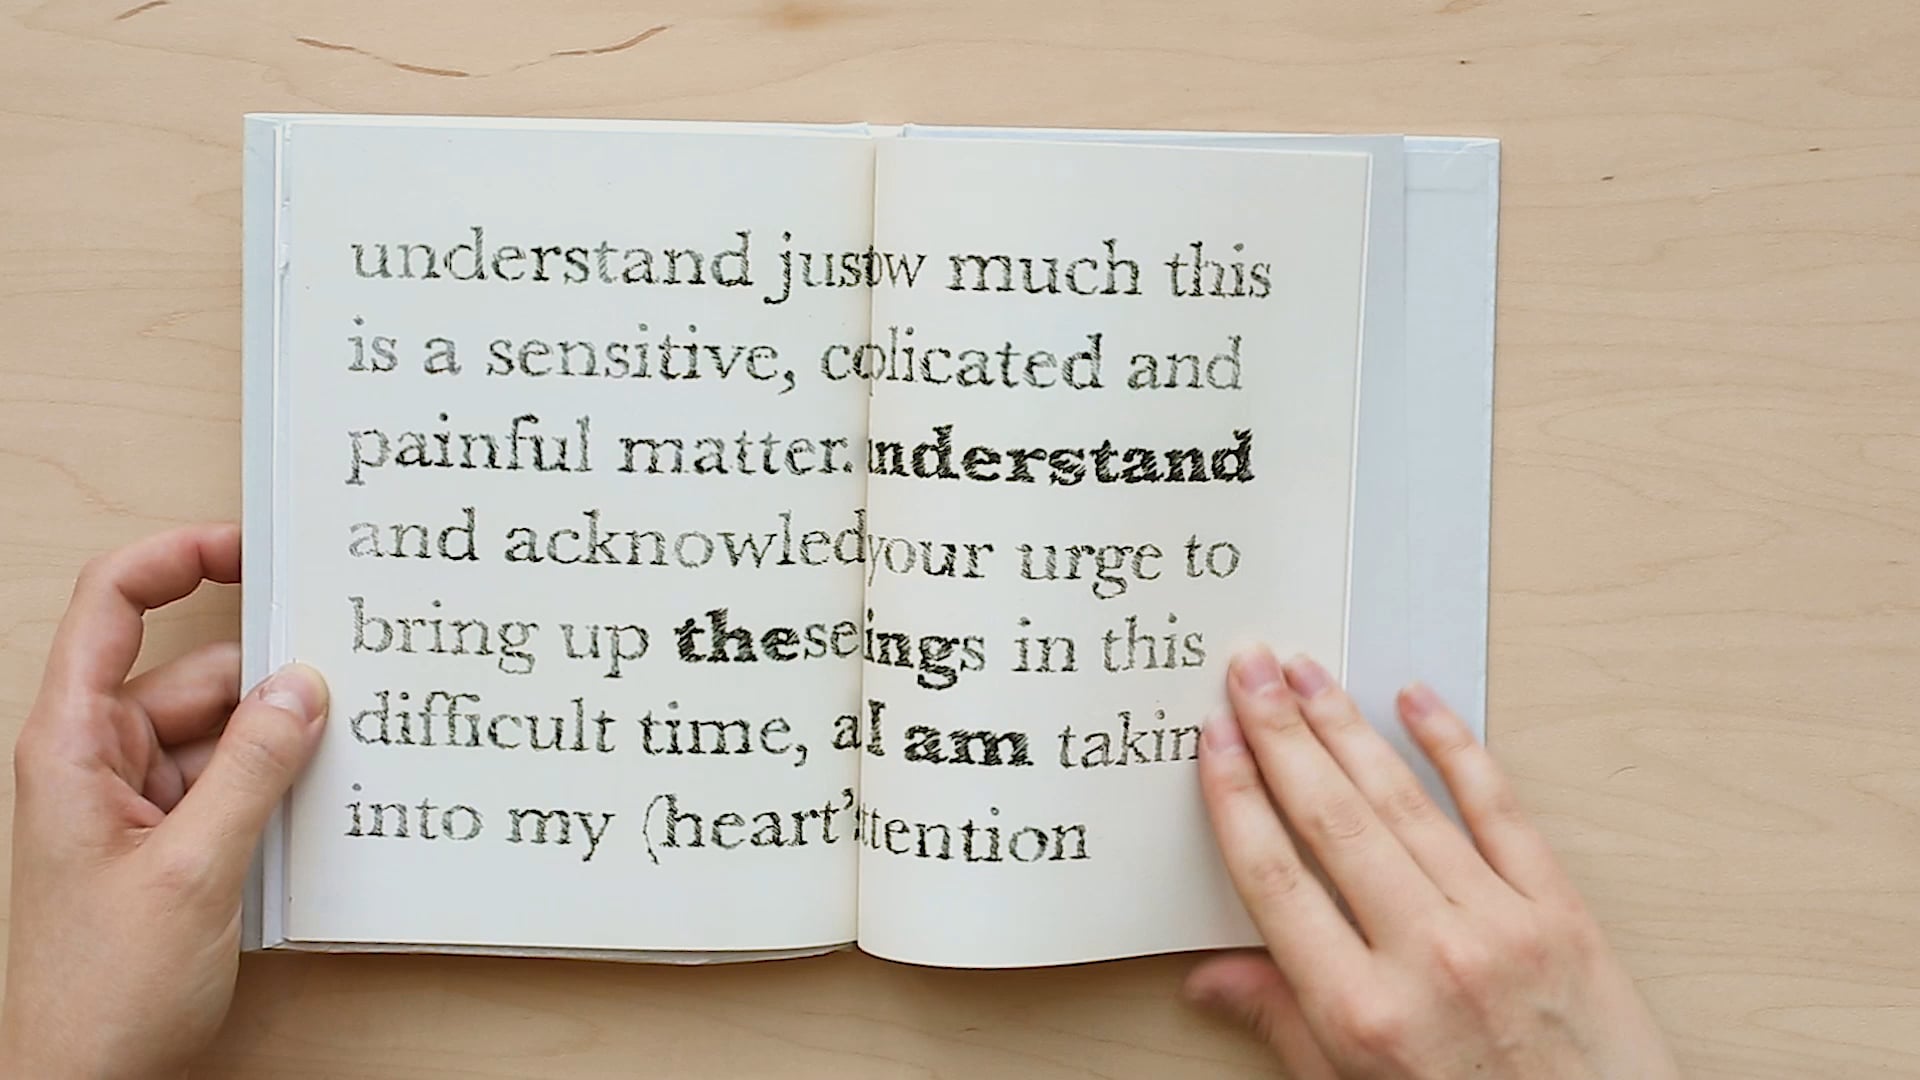 understand just ow much this
is a sensitive, co licated and
painful matter. understand
and acknowled your urge to
bring up these ings in this
difficult time, a I am takin
into my (heart's ttention